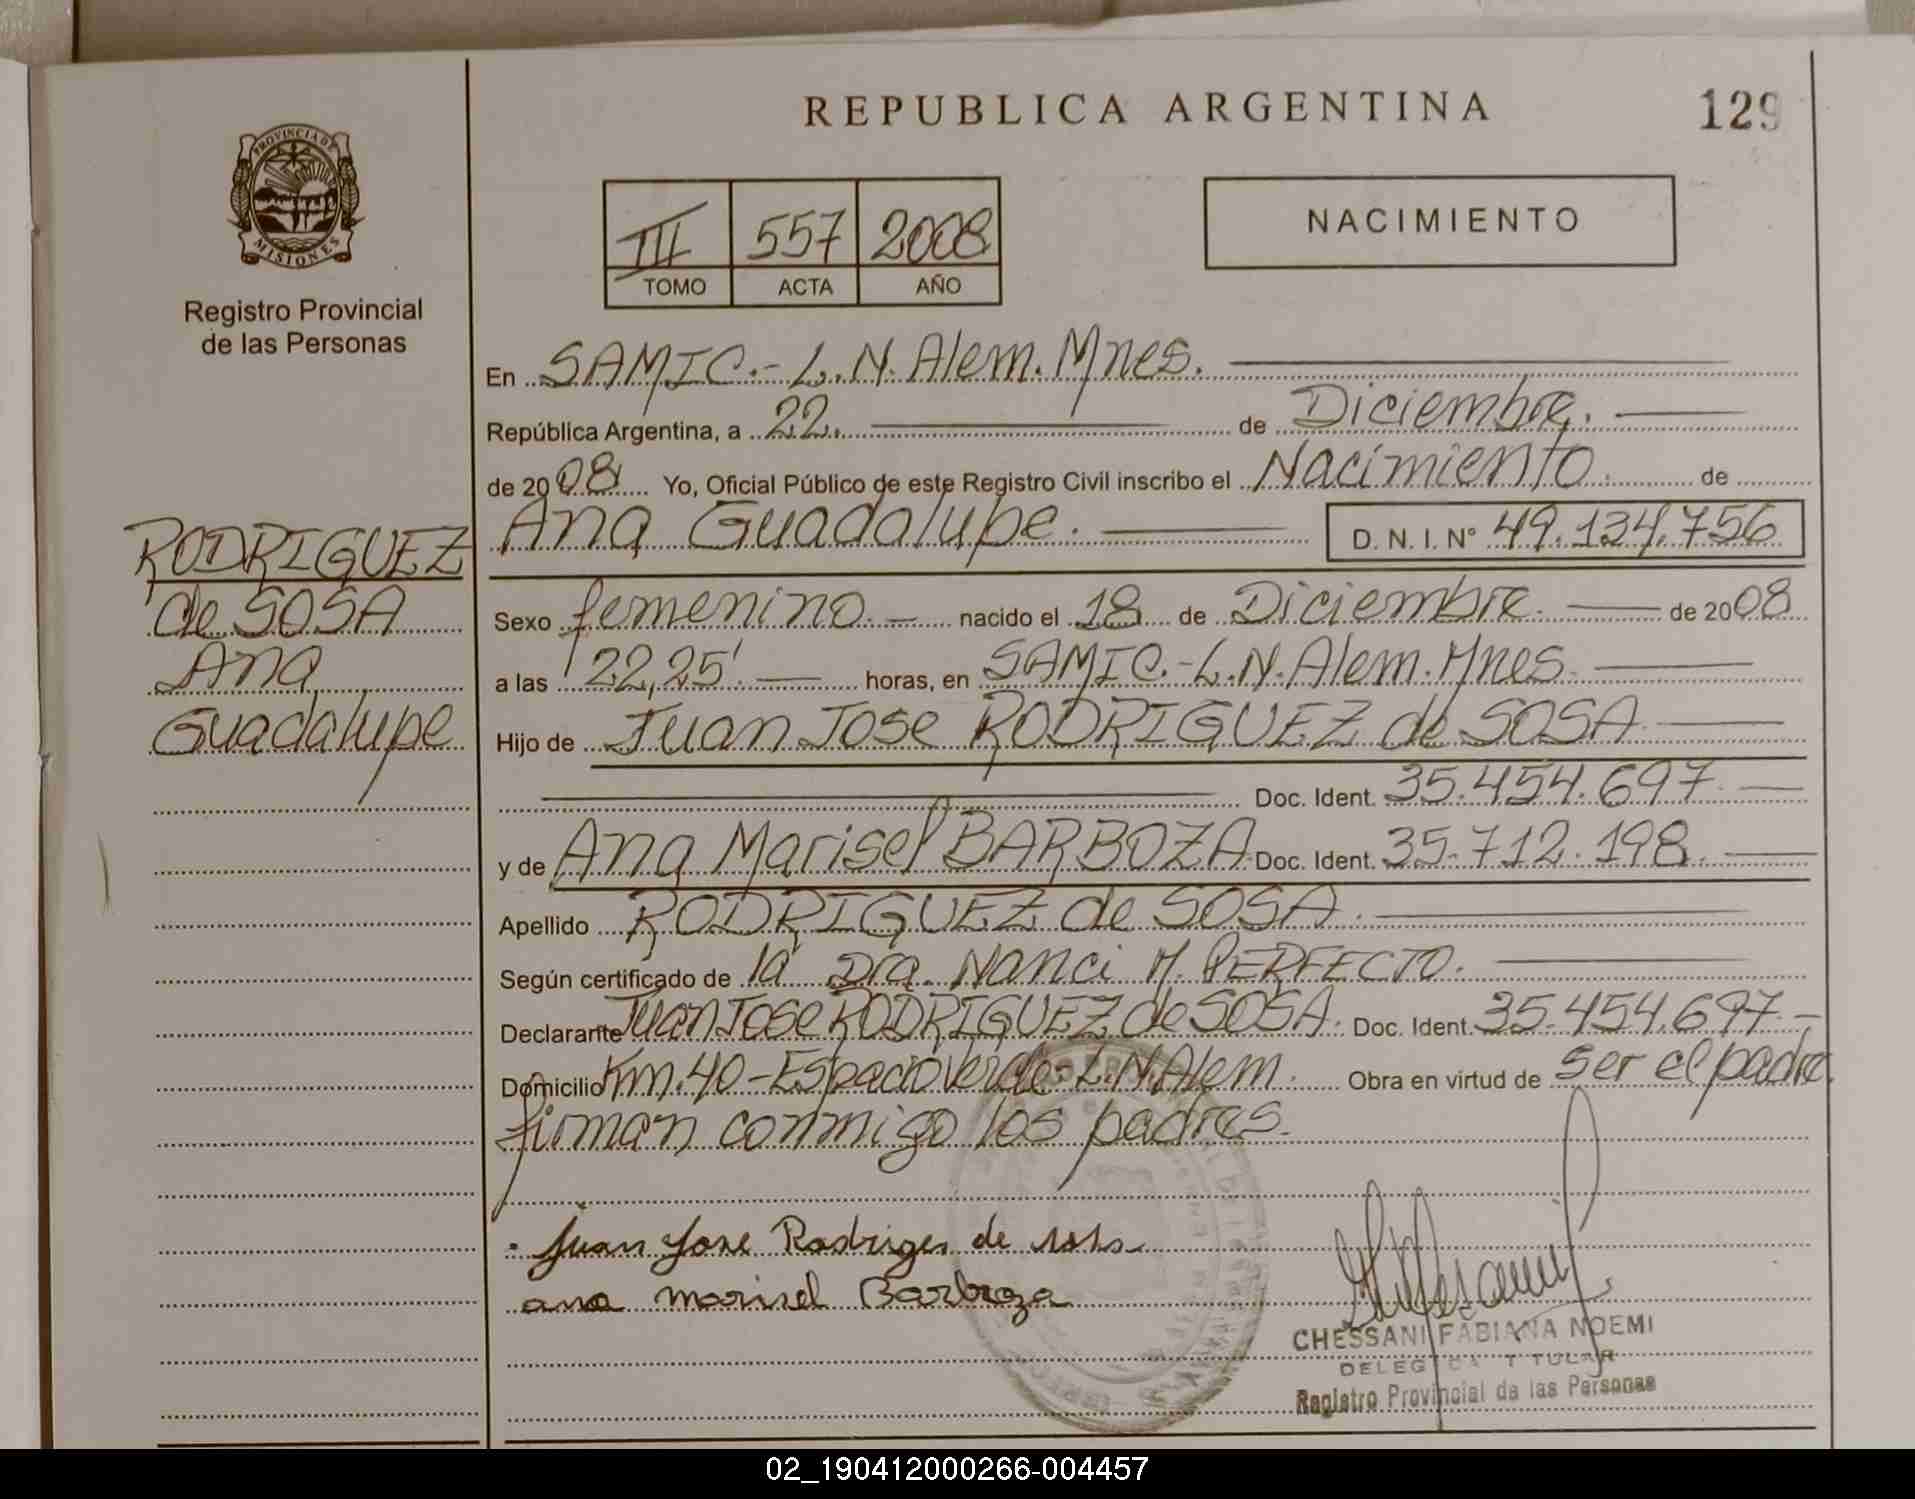 REPUBLICA ARGENTINA
129
PROVINCIA DE
MISIONES
Registro Provincial
de las Personas
III 557 2008
TOMO ACTA AÑO
NACIMIENTO
En SAMIC.- L.N. Alem. Mnes.
República Argentina, a 22. de Diciembre.
de 2008 Yo, Oficial Público de este Registro Civil inscribo el Nacimiento. de
Ana Guadalupe. D.N.I. N° 49.134.756
RODRIGUEZ
de SOSA
Ana
Guadalupe
Sexo femenino.- nacido el 18 de Diciembre. de 2008
a las 22,25'. horas, en SAMIC.-L.N. Alem. Mnes.
Hijo de Juan Jose RODRIGUEZ de SOSA
Doc. Ident. 35.454.697.
y de Ana Marisel BARBOZA. Doc. Ident. 35.712.198.
Apellido RODRIGUEZ de SOSA.
Según certificado de la Dra. Nanci M. PERFECTO.
Declarante Juan Jose RODRIGUEZ de SOSA. Doc. Ident. 35.454.697.-
Domicilio Km.40-Espacio Verde-L.N Alem. Obra en virtud de ser el padre.
firman conmigo los padres.
Juan Jose Rodriges de sosa
ana marisel Barboza
CHESSANI FABIANA NOEMI
DELEGADA TITULAR
Registro Provincial de las Personas
02_190412000266-004457